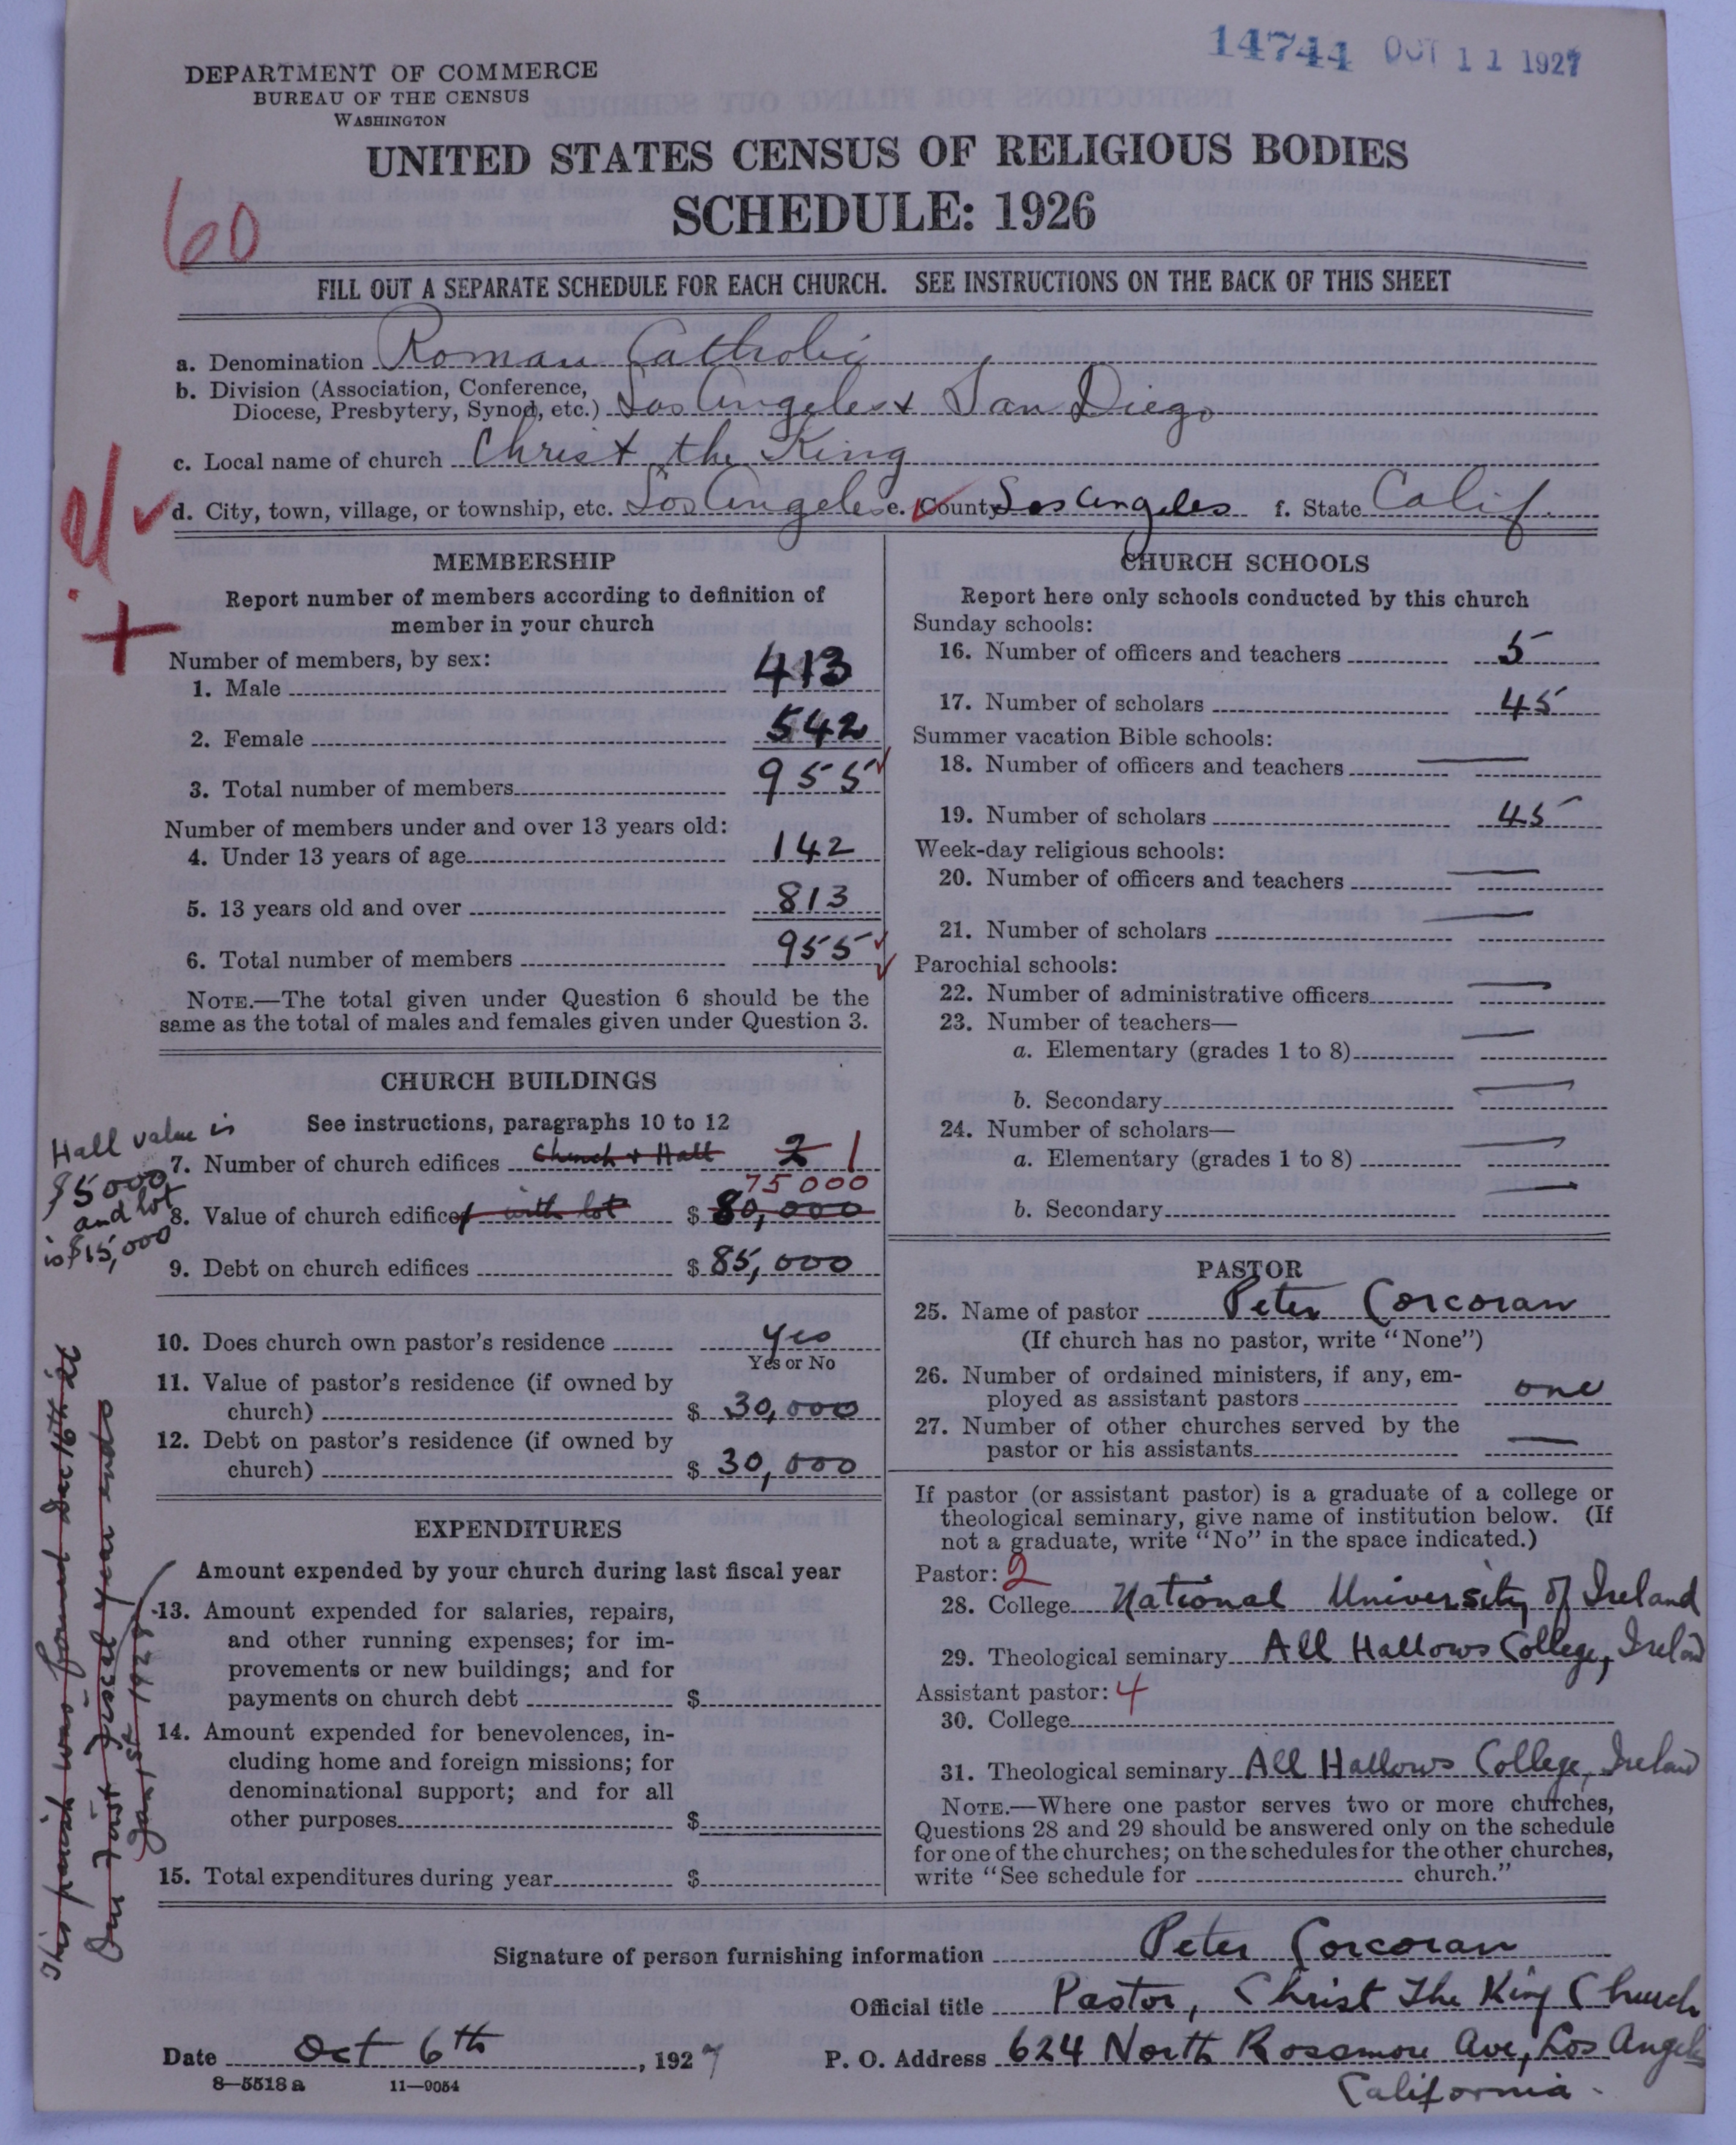 14744 OCT 11 1927
DEPARTMENT OF COMMERCE
BUREAU OF THE CENSUS
WASHINGTON
UNITED STATES CENSUS OF RELIGIOUS BODIES
SCHEDULE: 1926
60
FILL OUT A SEPARATE SCHEDULE FOR EACH CHURCH. SEE INSTRUCTIONS ON THE BACK OF THIS SHEET
a. Denomination Roman Catholic
b. Division (Association, Conference,
Diocese, Presbytery, Synod, etc.) Los Angeles + San Diego
c. Local name of church Christ the King
d. City, town, village, or township, etc. Los Angeles e. County Los Angeles f. State Calif.
MEMBERSHIP
Report number of members according to definition of
member in your church
Number of members, by sex:
1. Male 413
2. Female 542
3. Total number of members 955
Number of members under and over 13 years old:
4. Under 13 years of age 142
5. 13 years old and over 813
6. Total number of members 955
NOTE.—The total given under Question 6 should be the
same as the total of males and females given under Question 3.
CHURCH BUILDINGS
See instructions, paragraphs 10 to 12
7. Number of church edifices Church + Hall 2 1
75000
8. Value of church edifices with lot $ 80,000
9. Debt on church edifices $ 85,000
Hall value is
$5000
and lot
is $15,000
10. Does church own pastor's residence Yes
Yes or No
11. Value of pastor's residence (if owned by
church) $ 30,000
12. Debt on pastor's residence (if owned by
church) $ 30,000
EXPENDITURES
Amount expended by your church during last fiscal year
13. Amount expended for salaries, repairs,
and other running expenses; for im-
provements or new buildings; and for
payments on church debt $
14. Amount expended for benevolences, in-
cluding home and foreign missions; for
denominational support; and for all
other purposes $
15. Total expenditures during year $
This parish was formed Dec 16th 26
Our first fiscal year ends
Jan 1st 1928
CHURCH SCHOOLS
Report here only schools conducted by this church
Sunday schools:
16. Number of officers and teachers 5
17. Number of scholars 45
Summer vacation Bible schools:
18. Number of officers and teachers
19. Number of scholars 45
Week-day religious schools:
20. Number of officers and teachers
21. Number of scholars
Parochial schools:
22. Number of administrative officers
23. Number of teachers—
a. Elementary (grades 1 to 8)
b. Secondary
24. Number of scholars—
a. Elementary (grades 1 to 8)
b. Secondary
PASTOR
25. Name of pastor Peter Corcoran
(If church has no pastor, write "None")
26. Number of ordained ministers, if any, em-
ployed as assistant pastors one
27. Number of other churches served by the
pastor or his assistants
If pastor (or assistant pastor) is a graduate of a college or
theological seminary, give name of institution below. (If
not a graduate, write "No" in the space indicated.)
Pastor: 2
28. College National University of Ireland
29. Theological seminary All Hallows College, Ireland
Assistant pastor: 4
30. College
31. Theological seminary All Hallows College, Ireland
NOTE.—Where one pastor serves two or more churches,
Questions 28 and 29 should be answered only on the schedule
for one of the churches; on the schedules for the other churches,
write "See schedule for church."
Signature of person furnishing information Peter Corcoran
Official title Pastor, Christ The King Church
Date Oct 6th, 1927
P. O. Address 624 North Rossmore Ave, Los Angeles
California.
8—5518 a 11—9054